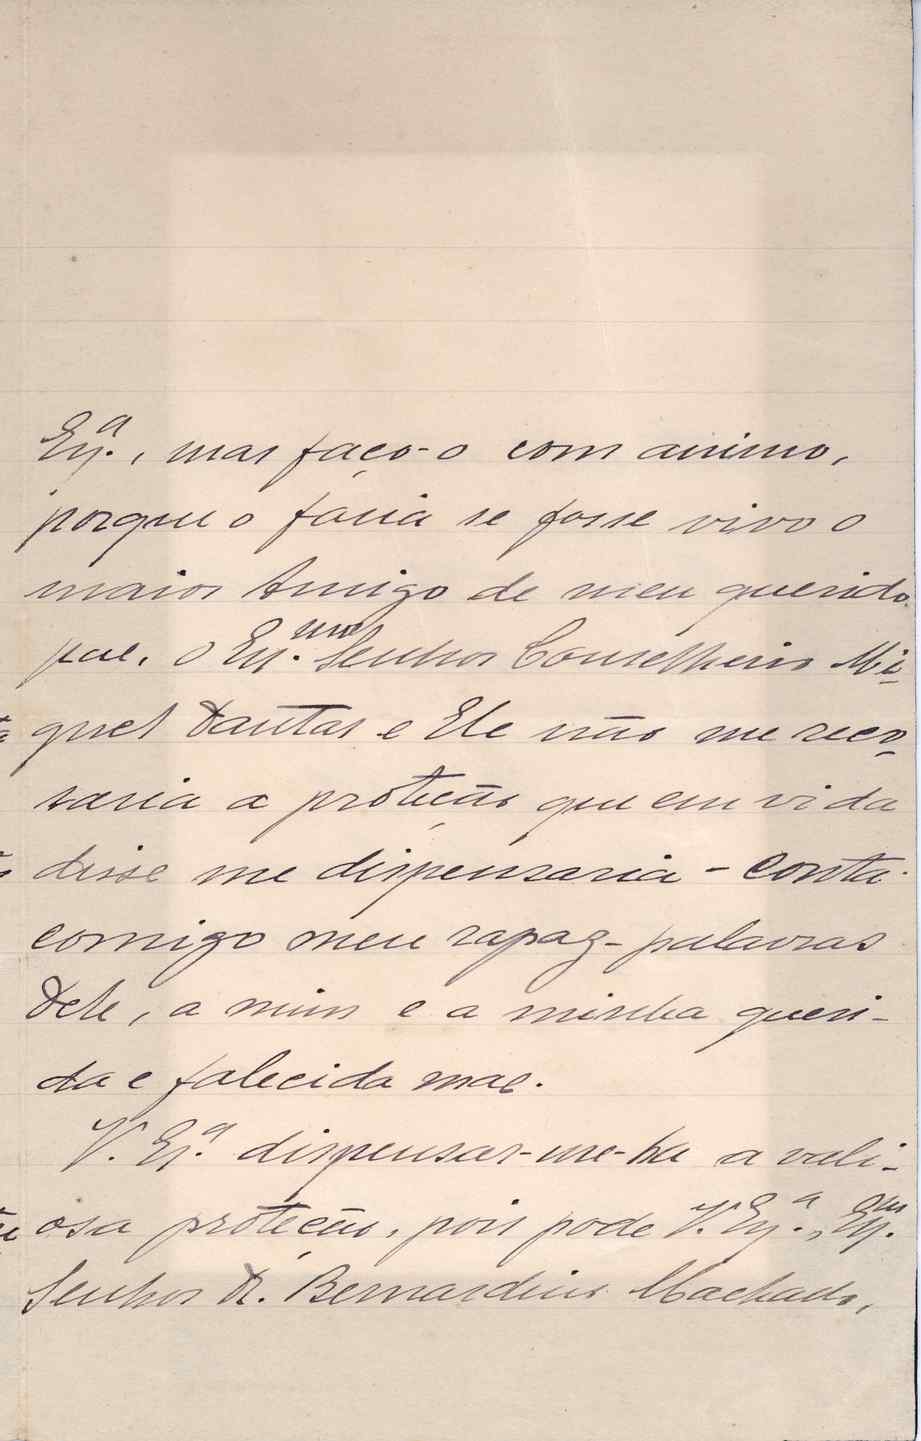 Exª., mas faço-o com animo,
porque o faria se fosse vivo o
maior Amigo de meu querido
pae, o Exmo. Senhor Conselheiro Mi-
guel Dantas e Ele não me recu-
saria a proteção que em vida
disse me dispensaria - Conta
comigo meu rapaz - palavras
Dele, a mim e a minha queri-
da e falecida mae.
V. Exª. dispensar-me-ha a vali-
osa proteção, pois pode V. Exª., Exm.
Senhor Dr. Bernardino Machado,